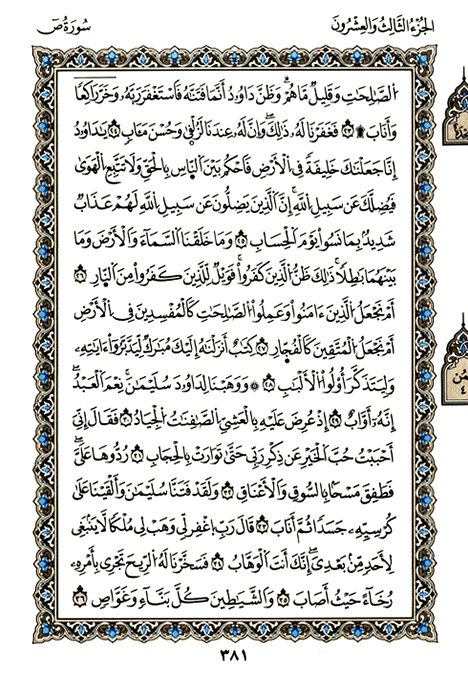 الجزء الثالث والعشرون
سورة ص
الصَّٰلِحَٰتِ وَقَلِيلٌ مَّا هُمْ ۗ وَظَنَّ دَاوُۥدُ أَنَّمَا فَتَنَّٰهُ فَٱسْتَغْفَرَ رَبَّهُۥ وَخَرَّ رَاكِعًا
وَأَنَابَ ۩ ٢٤ فَغَفَرْنَا لَهُۥ ذَٰلِكَ ۖ وَإِنَّ لَهُۥ عِندَنَا لَزُلْفَىٰ وَحُسْنَ مَـَٔابٍ ٢٥ يَٰدَاوُۥدُ
إِنَّا جَعَلْنَٰكَ خَلِيفَةً فِى ٱلْأَرْضِ فَٱحْكُم بَيْنَ ٱلنَّاسِ بِٱلْحَقِّ وَلَا تَتَّبِعِ ٱلْهَوَىٰ
فَيُضِلَّكَ عَن سَبِيلِ ٱللَّهِ ۚ إِنَّ ٱلَّذِينَ يَضِلُّونَ عَن سَبِيلِ ٱللَّهِ لَهُمْ عَذَابٌ
شَدِيدٌۢ بِمَا نَسُوا۟ يَوْمَ ٱلْحِسَابِ ٢٦ وَمَا خَلَقْنَا ٱلسَّمَآءَ وَٱلْأَرْضَ وَمَا
بَيْنَهُمَا بَٰطِلًا ۚ ذَٰلِكَ ظَنُّ ٱلَّذِينَ كَفَرُوا۟ ۚ فَوَيْلٌ لِّلَّذِينَ كَفَرُوا۟ مِنَ ٱلنَّارِ ٢٧
أَمْ نَجْعَلُ ٱلَّذِينَ ءَامَنُوا۟ وَعَمِلُوا۟ ٱلصَّٰلِحَٰتِ كَٱلْمُفْسِدِينَ فِى ٱلْأَرْضِ
أَمْ نَجْعَلُ ٱلْمُتَّقِينَ كَٱلْفُجَّارِ ٢٨ كِتَٰبٌ أَنزَلْنَٰهُ إِلَيْكَ مُبَٰرَكٌ لِّيَدَّبَّرُوٓا۟ ءَايَٰتِهِۦ
وَلِيَتَذَكَّرَ أُو۟لُوا۟ ٱلْأَلْبَٰبِ ٢٩ ۞ وَوَهَبْنَا لِدَاوُۥدَ سُلَيْمَٰنَ ۚ نِعْمَ ٱلْعَبْدُ ۖ
إِنَّهُۥٓ أَوَّابٌ ٣٠ إِذْ عُرِضَ عَلَيْهِ بِٱلْعَشِىِّ ٱلصَّٰفِنَٰتُ ٱلْجِيَادُ ٣١ فَقَالَ إِنِّىٓ
أَحْبَبْتُ حُبَّ ٱلْخَيْرِ عَن ذِكْرِ رَبِّى حَتَّىٰ تَوَارَتْ بِٱلْحِجَابِ ٣٢ رُدُّوهَا عَلَىَّ ۖ
فَطَفِقَ مَسْحًۢا بِٱلسُّوقِ وَٱلْأَعْنَاقِ ٣٣ وَلَقَدْ فَتَنَّا سُلَيْمَٰنَ وَأَلْقَيْنَا عَلَىٰ
كُرْسِيِّهِۦ جَسَدًا ثُمَّ أَنَابَ ٣٤ قَالَ رَبِّ ٱغْفِرْ لِى وَهَبْ لِى مُلْكًا لَّا يَنۢبَغِى
لِأَحَدٍ مِّنۢ بَعْدِىٓ ۖ إِنَّكَ أَنتَ ٱلْوَهَّابُ ٣٥ فَسَخَّرْنَا لَهُ ٱلرِّيحَ تَجْرِى بِأَمْرِهِۦ
رُخَآءً حَيْثُ أَصَابَ ٣٦ وَٱلشَّيَٰطِينَ كُلَّ بَنَّآءٍ وَغَوَّاصٍ ٣٧
٣٨١